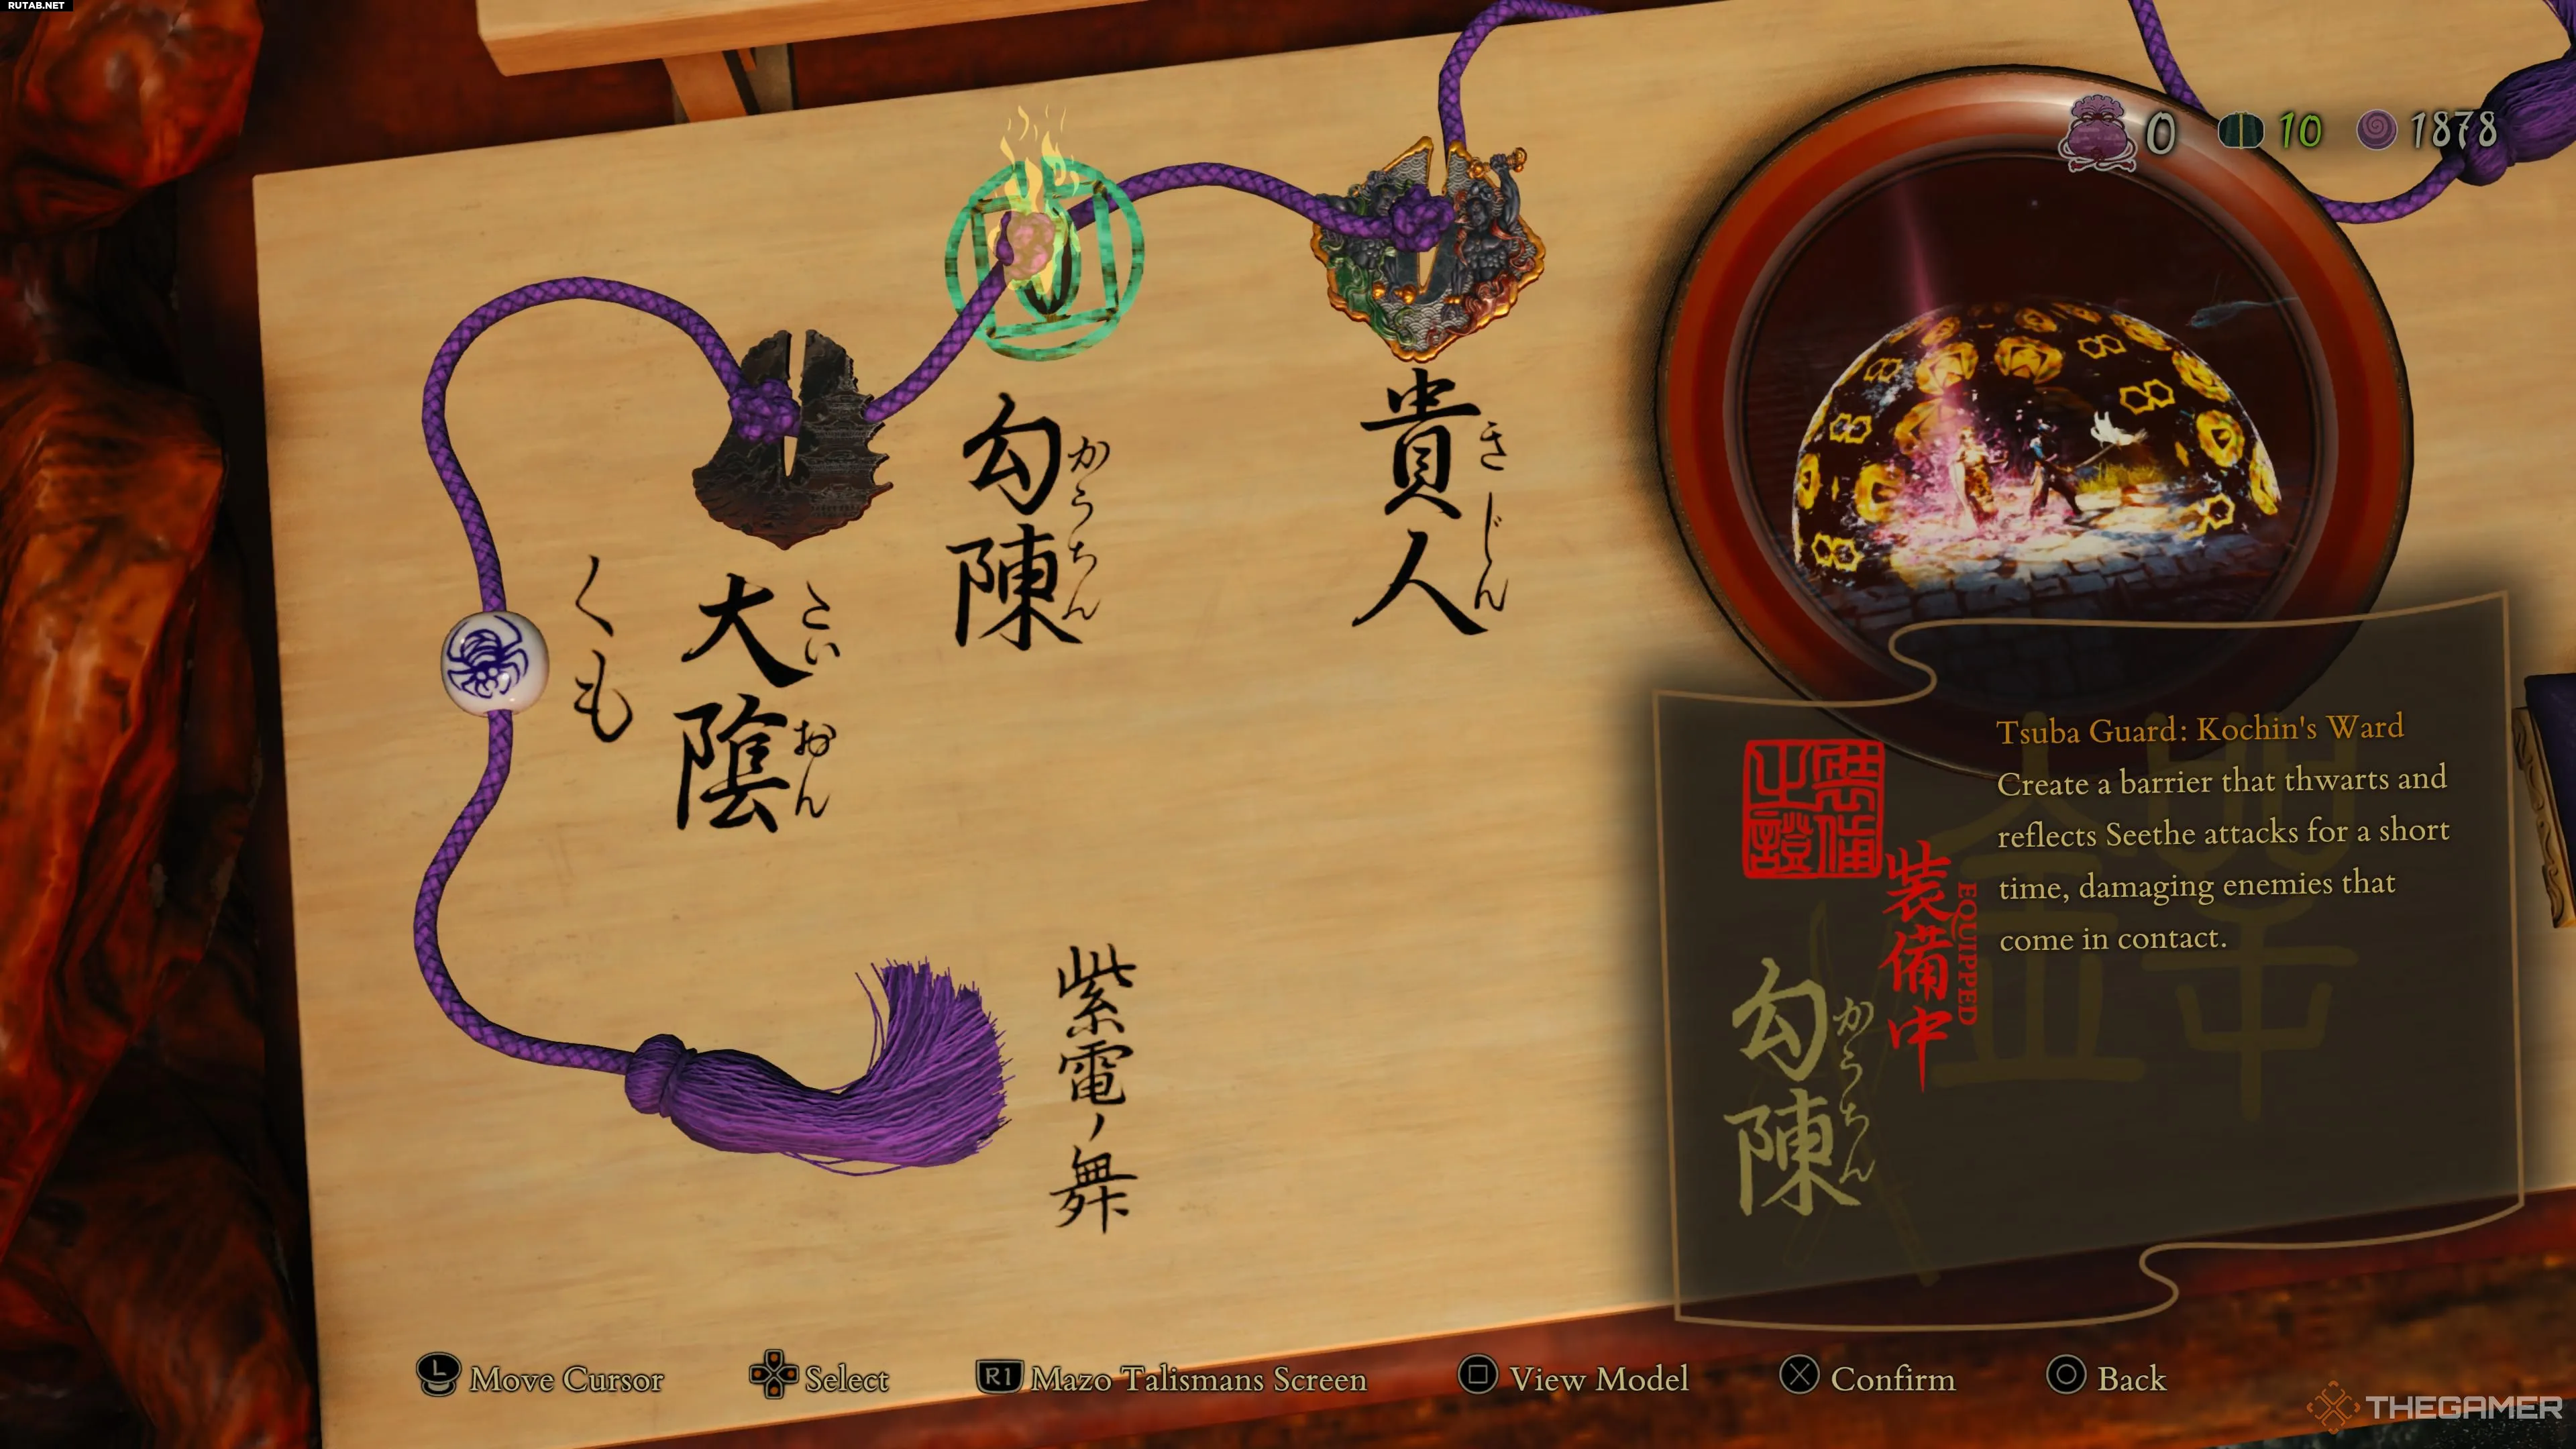 RUTAB.NET
0
10
1878
貴人
きじん
勾陳
かうちん
大陰
たいおん
くも
紫電ノ舞
Tsuba Guard: Kochin's Ward
Create a barrier that thwarts and
reflects Seethe attacks for a short
time, damaging enemies that
come in contact.
装備中
EQUIPPED
勾陳
かうちん
L Move Cursor
Select
R1 Mazo Talismans Screen
View Model
Confirm
Back
THEGAMER